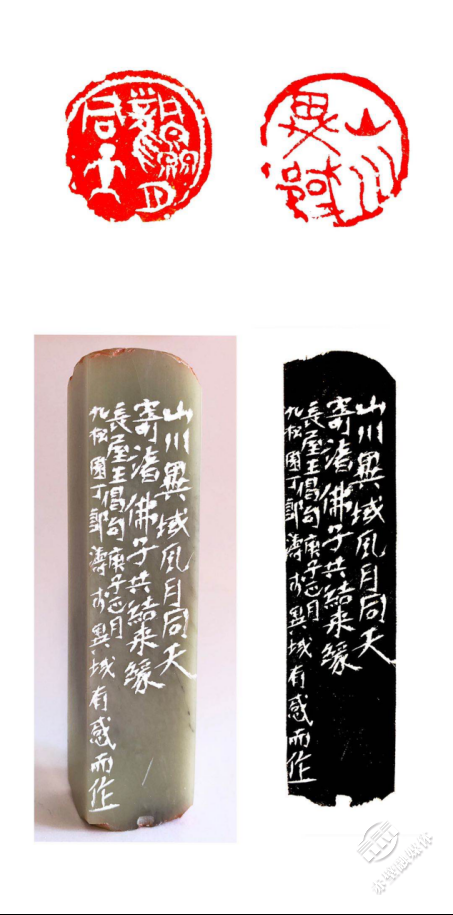 風月
同天
山川
異域
山川異域風月同天
寄諸佛子共結来緣
長屋王偈句庚子正月
九松園丁郭濤於異域有感而作
山川異域風月同天
寄諸佛子共結来緣
長屋王偈句庚子正月
九松園丁郭濤於異域有感而作
融媒体